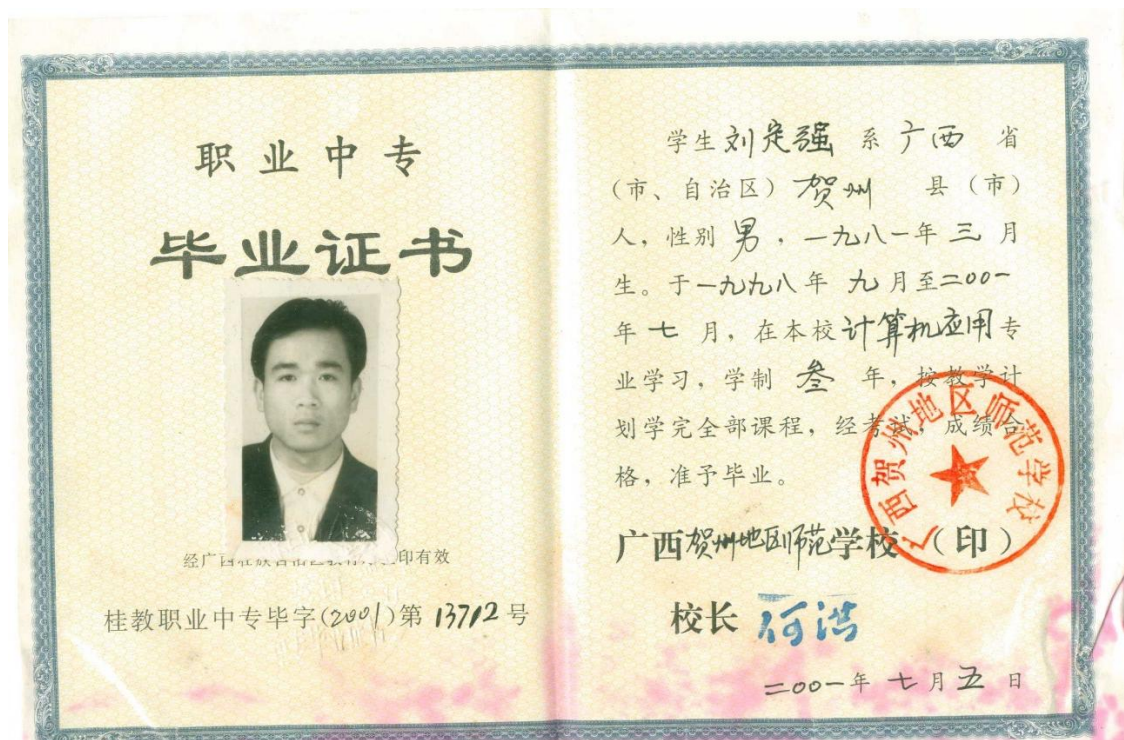 职业中专
毕业证书
经广西壮族自治区教育厅验印有效
桂教职业中专毕字(2001)第13712号
学生刘定强系广西省
(市、自治区)贺州县(市)
人，性别男，一九八一年三月
生。于一九九八年九月至二00一
年七月，在本校计算机应用专
业学习，学制叁年，按教学计
划学完全部课程，经考试，成绩合
格，准予毕业。
广西贺州地区师范学校(印)
广西贺州地区师范学校
校长 何浩
二00一年七月五日